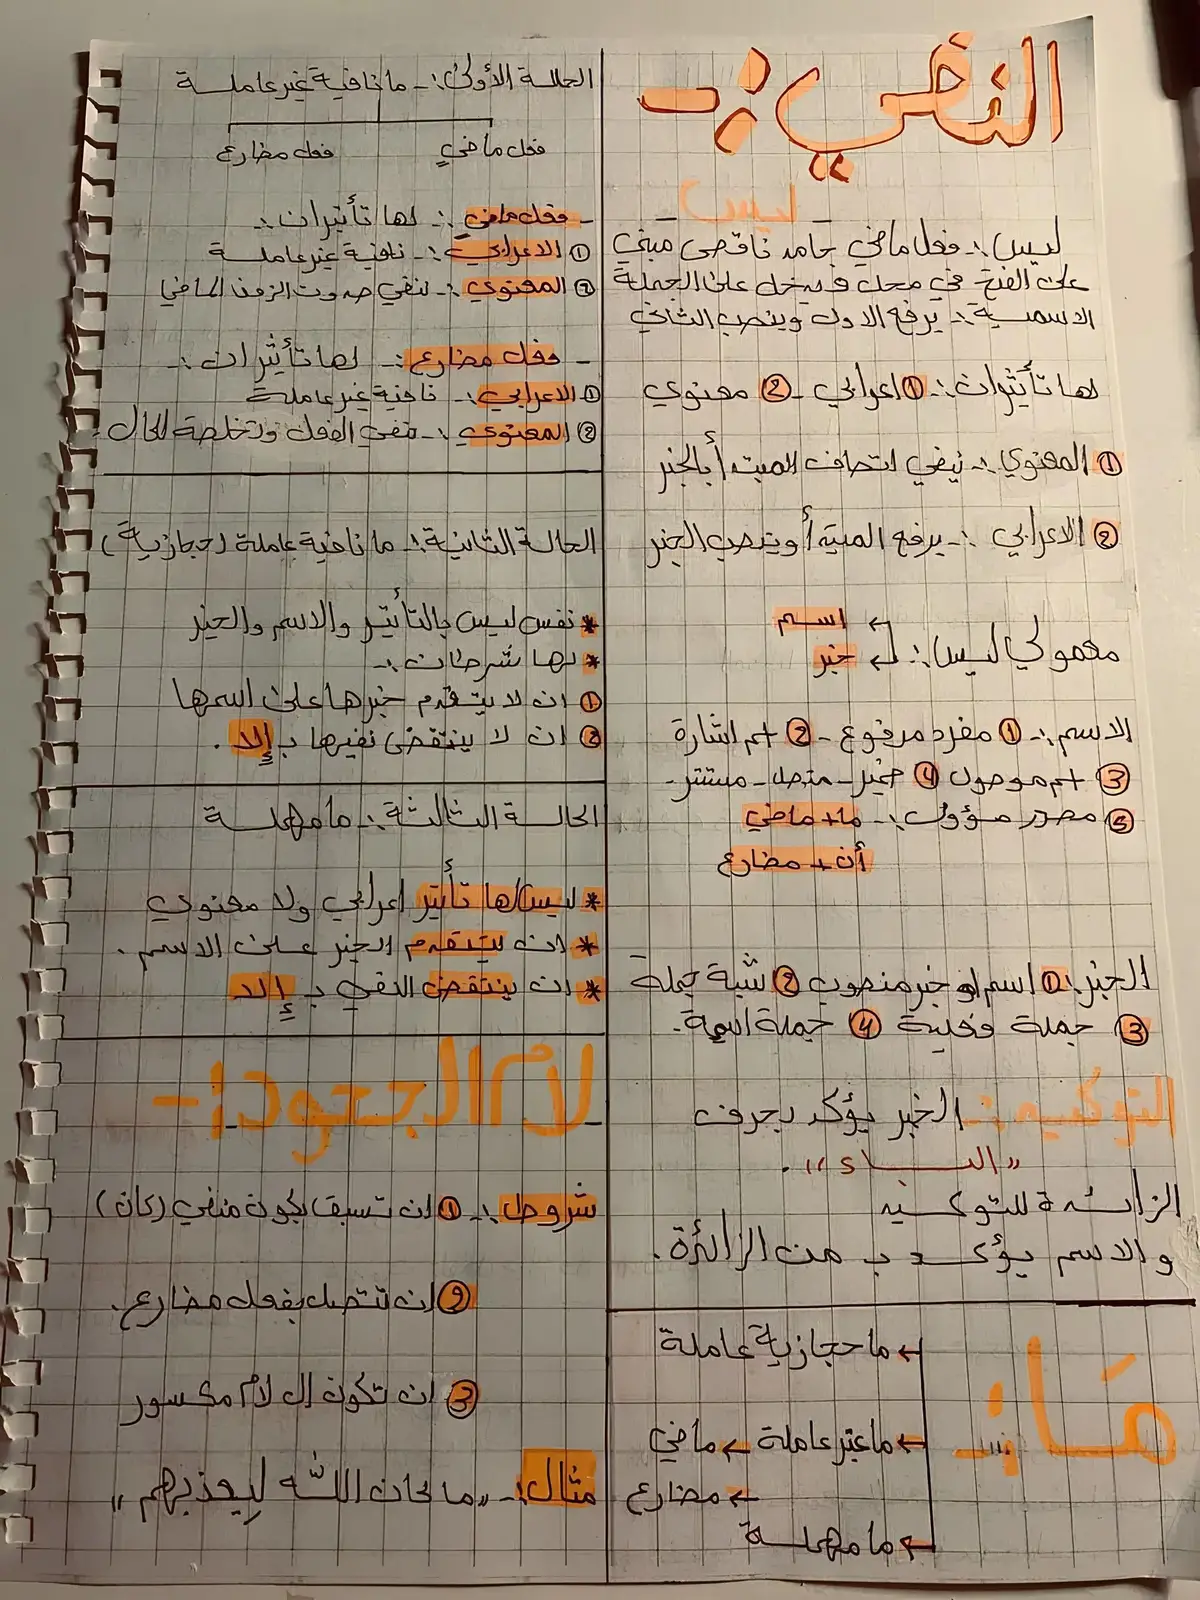 النفي :-
ليس
ليس :- فعل ماضي جامد ناقص مبني
على الفتح في محل ويدخل على الجملة
الاسمية :- يرفع الاول وينصب الثاني
لها تأثيرات :- ① اعرابي - ② معنوي
① المعنوي :- ينفي اتصاف المبتدأ بالخبر
② الاعرابي :- يرفع المبتدأ وينصب الخبر
معمولي ليس :- اسم
خبر
الاسم :- ① مفرد مرفوع - ② اسم اشارة
③ اسم موصول ④ ضمير - متصل - مستتر -
⑤ مصدر مؤول :- ما + ماضي
أن + مضارع
الخبر :- ① اسم او خبر منصوب ② شبة جملة
③ جملة فعلية ④ جملة اسمية .
التوكيد :- الخبر يؤكد بحرف
"البــاء" .
الزائدة للتوكيد
والاسم يؤكد بـ من الزائدة .
مَـا :-
← ما حجازية عاملة
← ما غير عاملة ← ماضي
← مضارع
← ما مهملة
الحالة الأولى :- ما نافية غير عاملة
فعل ماضي فعل مضارع
- فعل ماضي :- لها تأثيران :-
① الاعرابي :- نافية غير عاملة
② المعنوي :- تنفي حدوث الزمن الماضي
- فعل مضارع :- لها تأثيران :-
① الاعرابي :- نافية غير عاملة
② المعنوي :- تنفي الفعل وتخلصة للحال .
الحالة الثانية :- ما نافية عاملة (حجازية)
* نفس ليس بالتأثير والاسم والخبر
* لها شرطان :-
① ان لا يتقدم خبرها على اسمها
② ان لا ينتقض نفيها بـ إلا .
الحالة الثالثة :- ما مهملة
* ليس لها تأثير اعرابي ولا معنوي
* ان يتقدم الخبر على الاسم .
* ان ينتقض النفي بـ إلا
لام الجحود :-
شروط :- ① ان تسبق بكون منفي (كان)
② ان تتصل بفعل مضارع .
③ ان تكون ال لام مكسور
مثال :- "ما كان اللّٰه لِيعذبهم"